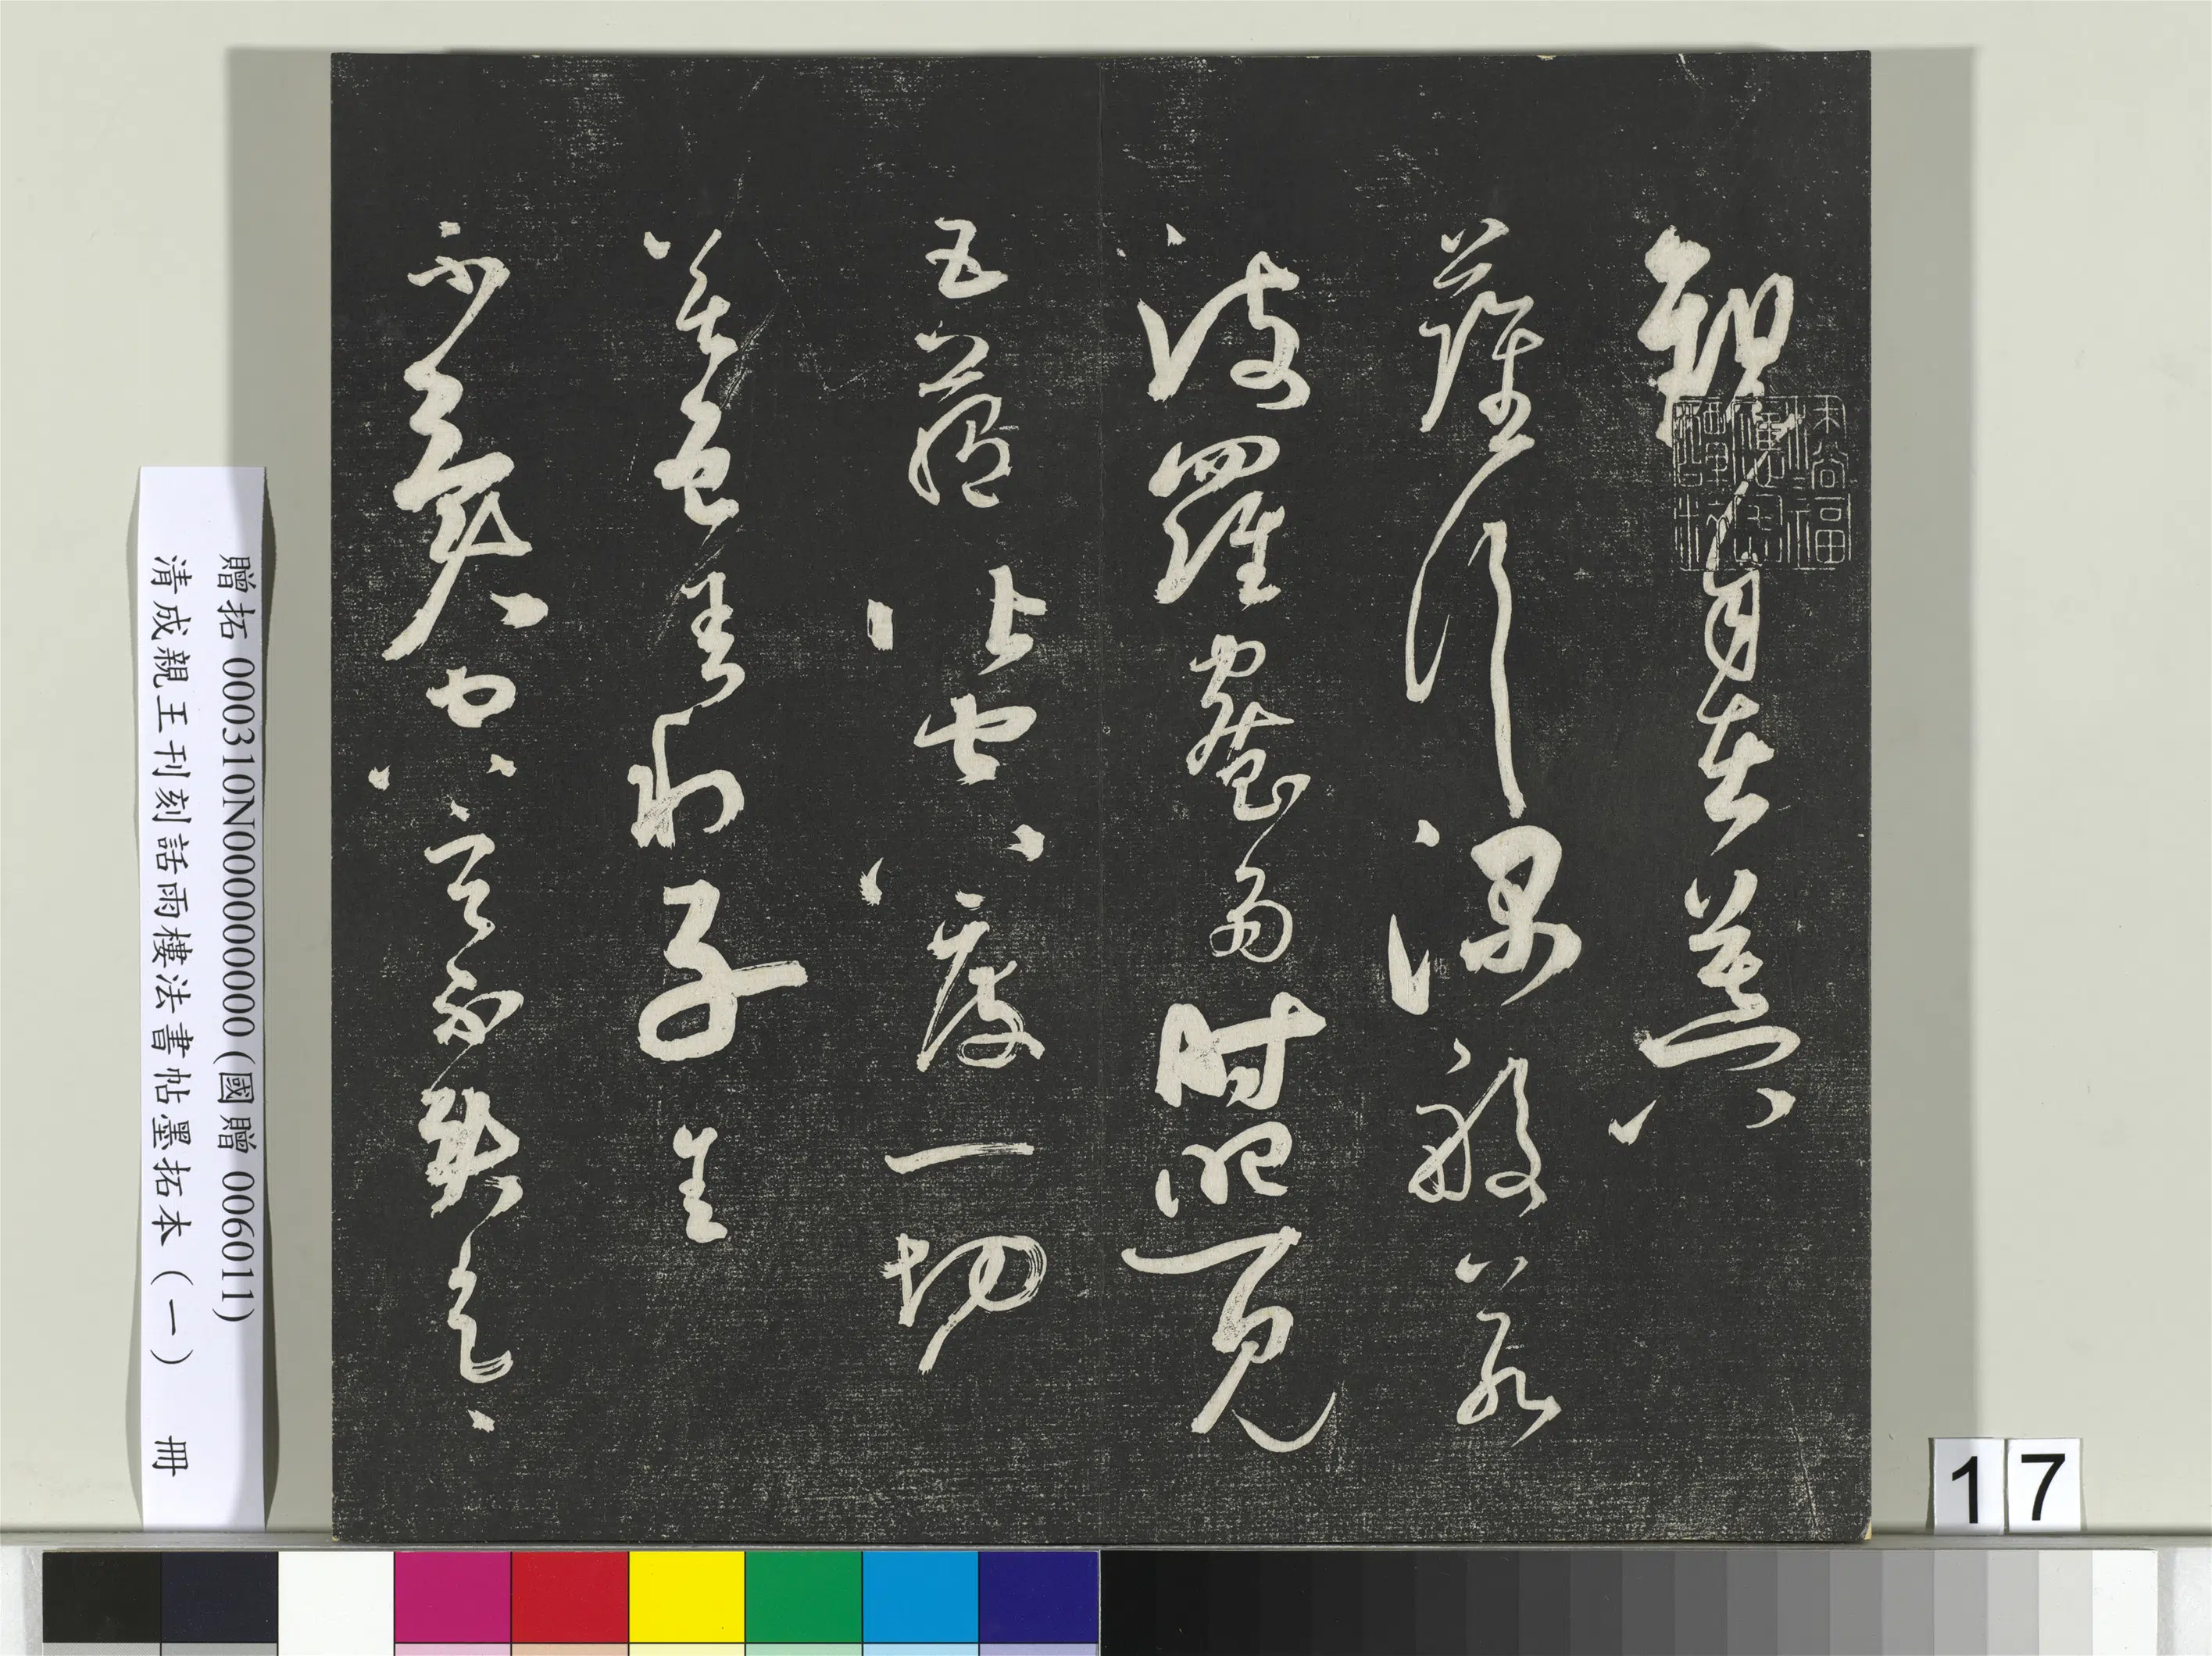 觀自在菩
薩行深般若
波羅蜜多時照見
五蘊皆空度一切
苦厄舍利子色
不異空空不異色
贈拓 000310N000000000 (國贈 006011)
清成親王刊刻話雨樓法書帖墨拓本（一） 冊
17